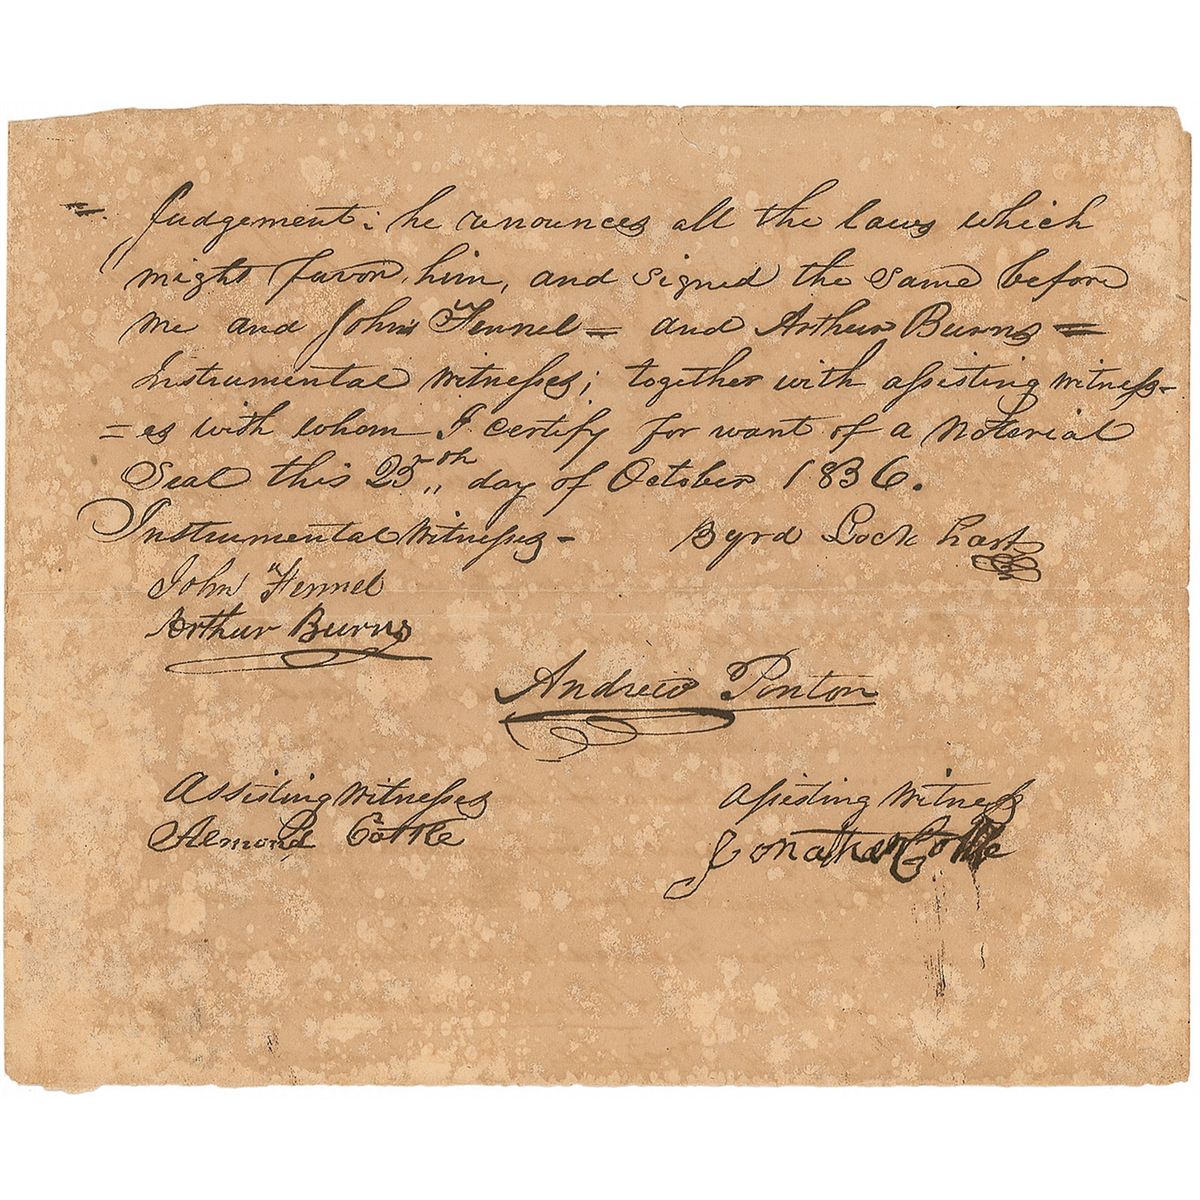 =. Judgement: he renounces all the laws which
might favor him, and signed the same before
me and John Fennel = and Arthur Burns =
Instrumental Witnesses; together with assisting witness-
=es with whom I certify for want of a Noterial
Seal this 25th day of October 1836.
Instrumental Witnesses - Byrd Lock hart
John Fennel
Arthur Burns
Andrew Ponton
Assisting Witnesses Assisting Witness
Almond Cottle Jonathan Cottle